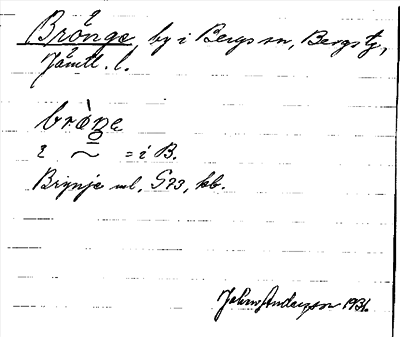 Brånge, by i Bergs sn, Bergs tg,
Jämtl. l.
bròŋe
i ~ = i B.
Brynje ul. S73, kb.
John Anderzon 1931.